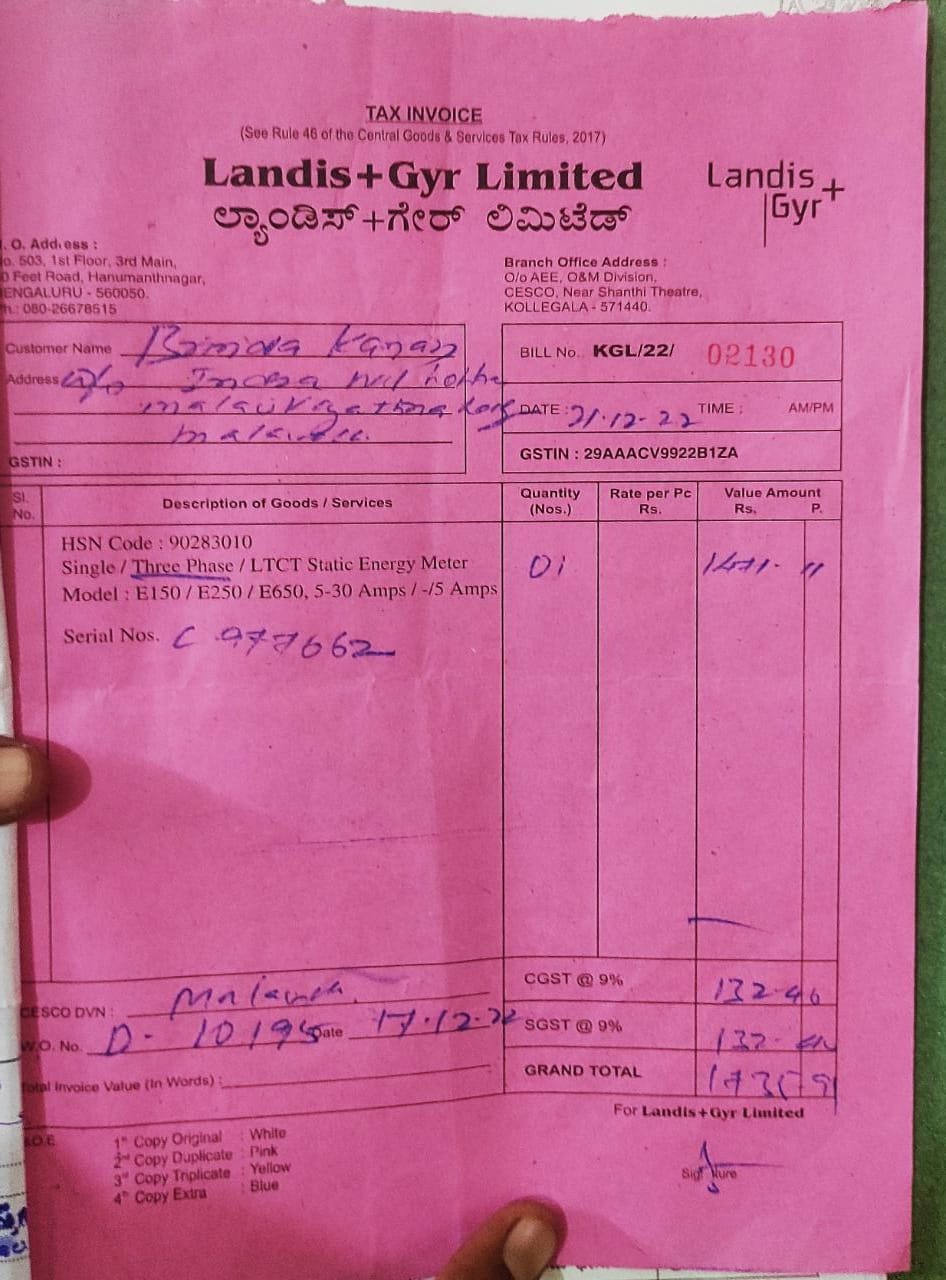 TAX INVOICE
(See Rule 46 of the Central Goods & Services Tax Rules, 2017)
Landis+Gyr Limited
Landis+Gyr
ಲ್ಯಾಂಡಿಸ್+ಗೇರ್ ಲಿಮಿಟೆಡ್
. O. Address :
o. 503, 1st Floor, 3rd Main,
0 Feet Road, Hanumanthnagar,
ENGALURU - 560050.
h.: 080-26678515
Branch Office Address :
O/o AEE, O&M Division,
CESCO, Near Shanthi Theatre,
KOLLEGALA - 571440.
Customer Name
Address
GSTIN :
BILL No. KGL/22/ 02130
DATE : 21.12.22 TIME : AM/PM
GSTIN : 29AAACV9922B1ZA
Sl. No. Description of Goods / Services Quantity (Nos.) Rate per Pc Rs. Value Amount Rs. P.
HSN Code : 90283010
Single / Three Phase / LTCT Static Energy Meter 01 1471- 11
Model : E150 / E250 / E650, 5-30 Amps / -/5 Amps
Serial Nos. C 977662
CESCO DVN :
W.O. No. D- 10195 Date 17.12.22
Total Invoice Value (In Words) :
CGST @ 9% 132-40
SGST @ 9% 132-40
GRAND TOTAL
For Landis+Gyr Limited
Signature
1st Copy Original : White
2nd Copy Duplicate : Pink
3rd Copy Triplicate : Yellow
4th Copy Extra : Blue